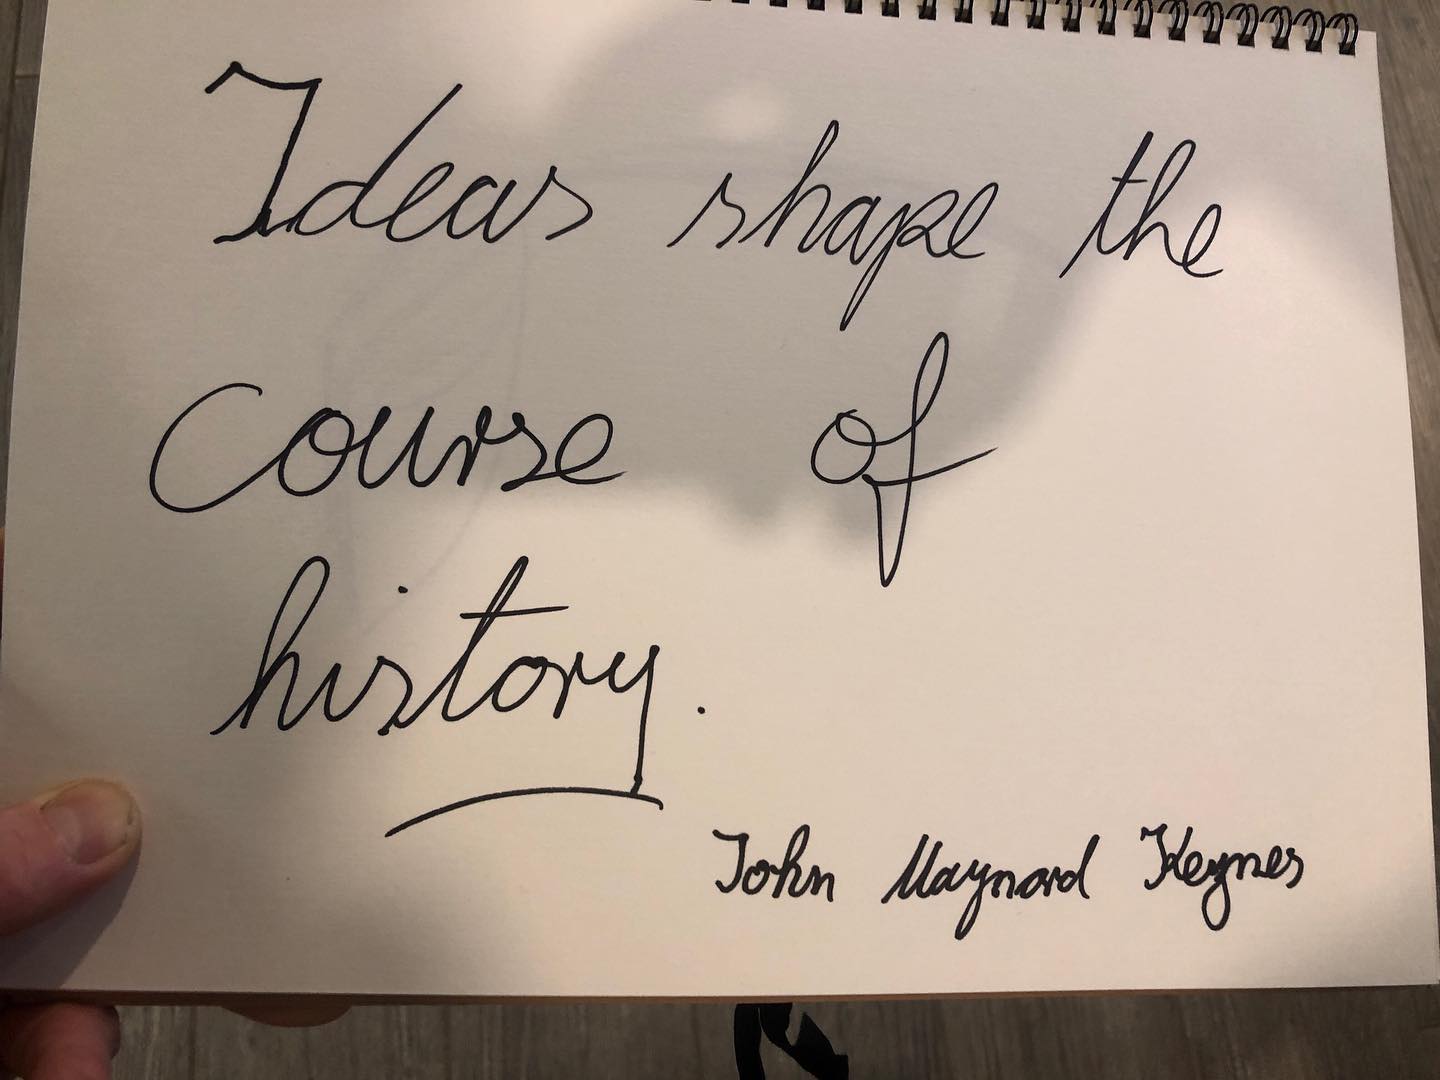 Ideas shape the
course of
history.
John Maynard Keynes